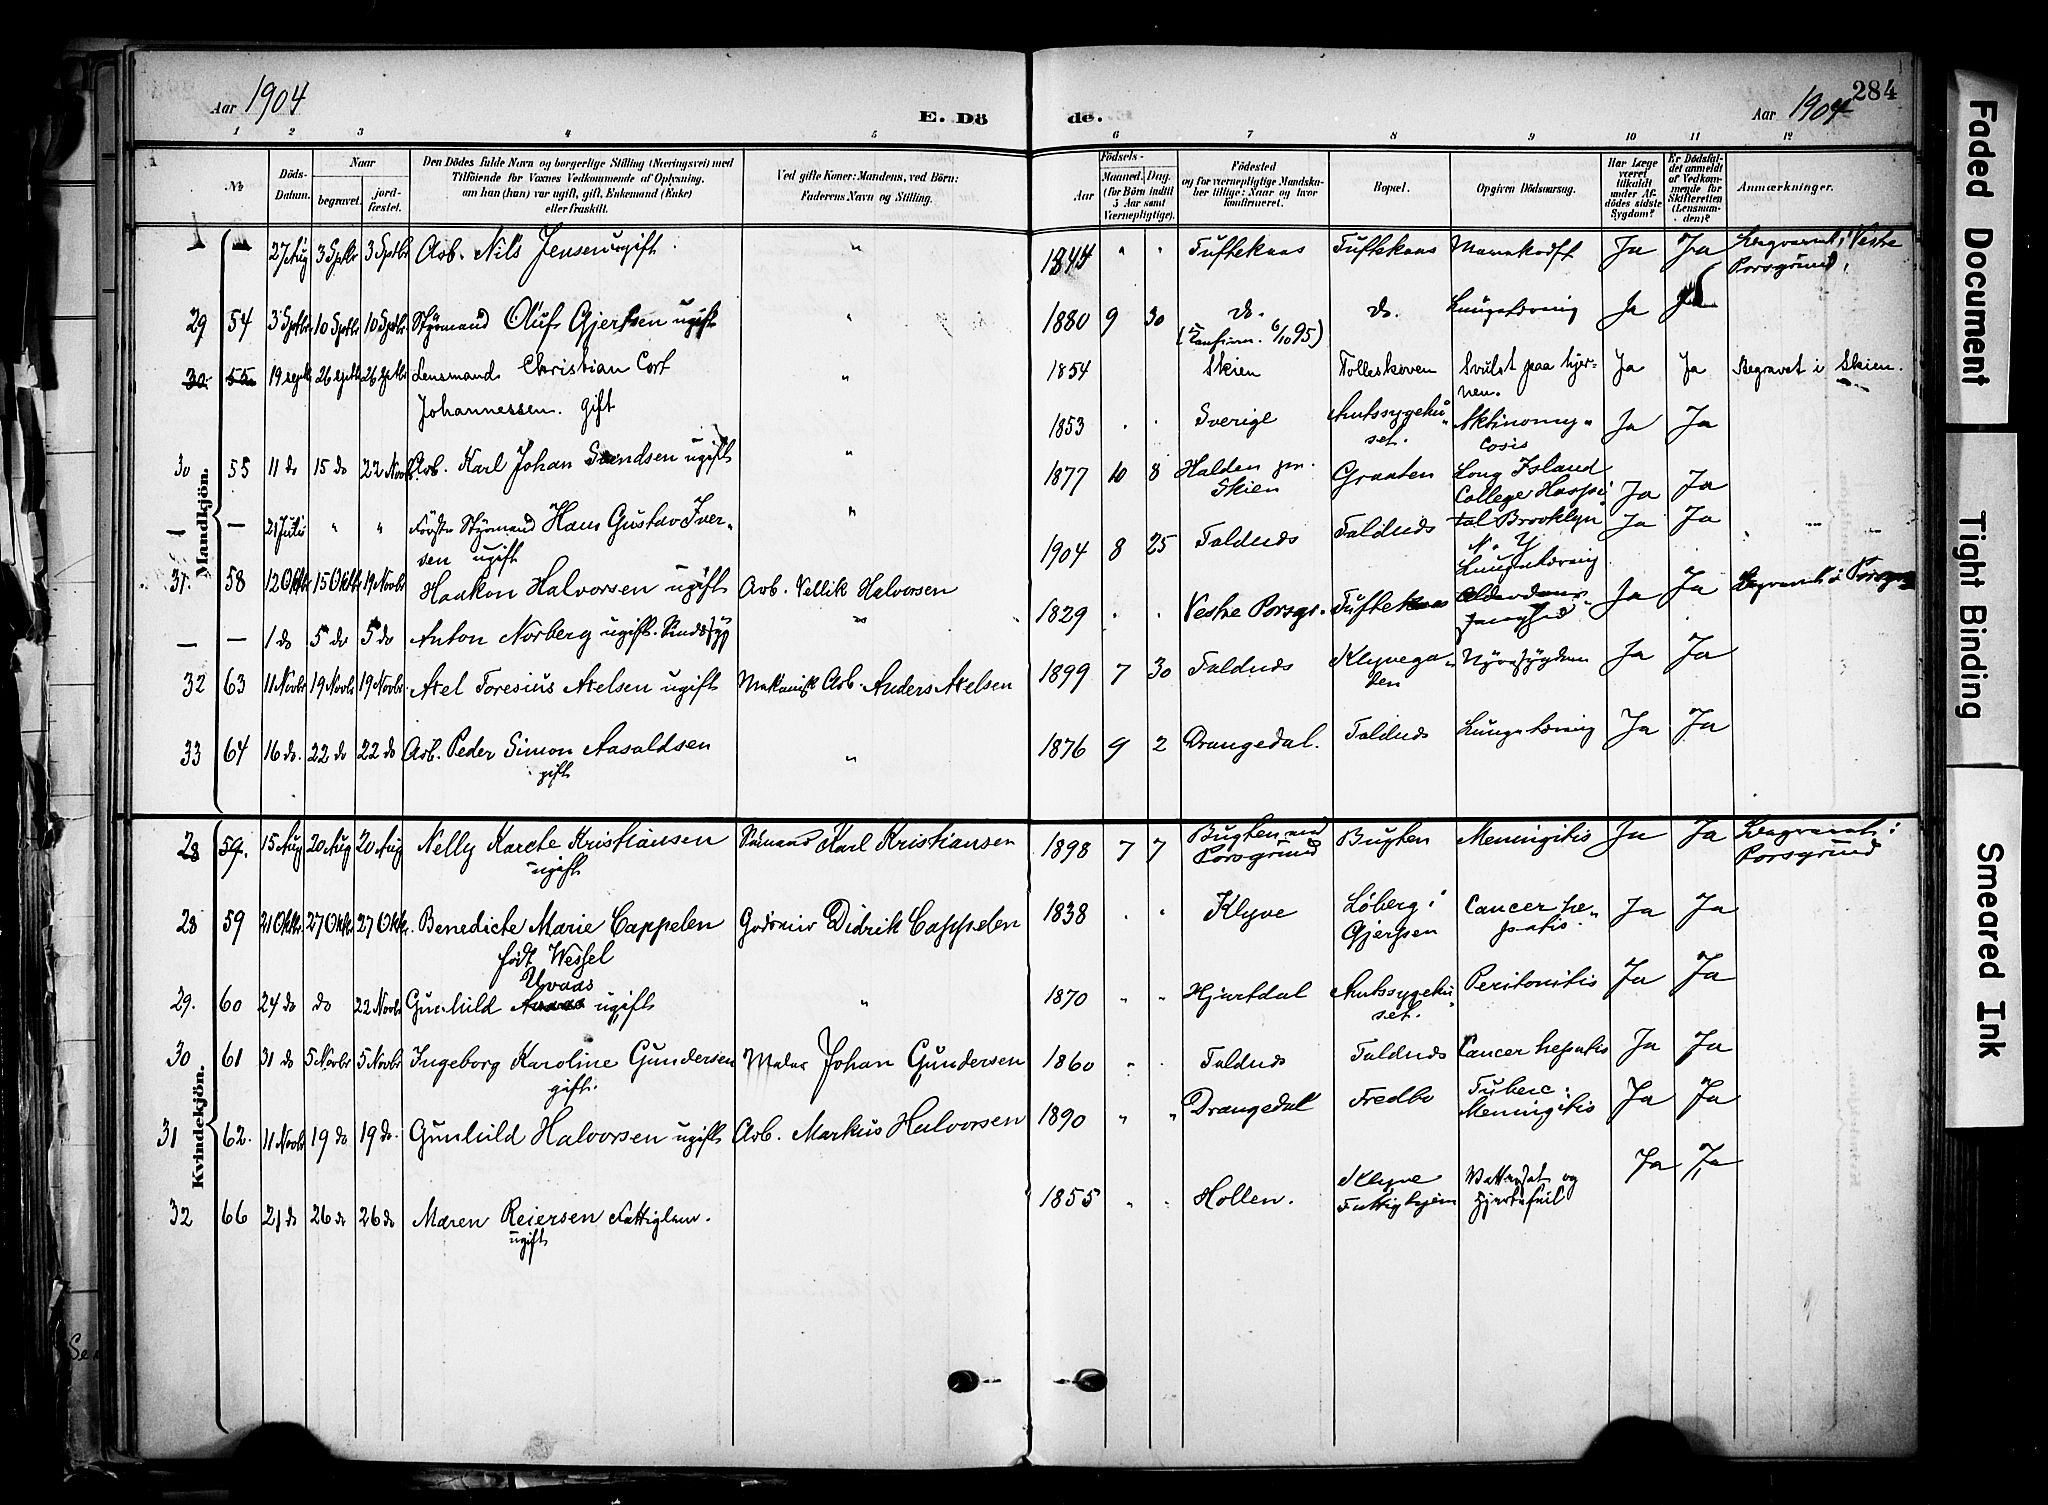 284
Aar 1904
E. Dö
de.
Aar 1904
1 2 3 4 5 6 7 8 9 10 11 12
No
Döds-Datum.
Naar
begravet.
jord-fæstet.
Den Dödes fulde Navn og borgerlige Stilling (Næringsvei) med
Tilföiende for Voxnes Vedkommende af Oplysning,
om han (hun) var ugift, gift, Enkemand (Enke)
eller fraskilt.
Ved gifte Koner: Mandens, ved Börn:
Faderens Navn og Stilling.
Födsels-
Aar
Maaned. Dag.
(for Börn indtil
5 Aar samt
Værnepligtige).
Födested
og for værnepligtige Mandska-
ber tillige: Naar og hvor
konfirmeret.
Bopæl.
Opgiven Dödsaarsag.
Har Læge
været
tilkaldt
under Af-
dödes sidste
Sygdom?
Er Dödsfal-
det anmeldt
af Vedkom-
mende for
Skifteretten
(Lensman-
den)?
Anmærkninger.
Mandkjön.
27 Aug 3 Sptbr 3 Sptbr Arb. Nils Jensen ugift " 1844 " " Tuftekaas Tuftekaas Ja Ja Begravet i Vestre
Porsgrund.
29 54 3 Sptbr 10 Sptbr 10 Sptbr Styrmand Oluf Gjertsen ugift " 1880 9 30 do. do. Lungetæring Ja Ja
(Konfirm. 6/10 95)
30 55 19 septb 26 septb 26 septbr Lensmand Christian Cort " 1854 Skien Tolleskoven Svulst paa hjer-
nen. Ja Ja Begravet i Skien.
Johannessen. gift
30 55 11 do 15 do 22 Novbr Arb. Karl Johan Svendsen ugift " 1853 " " Sverige Amtssygehu-
set. Aktinomy-
cosis Ja Ja
— 21 Juli " " Förste Styrmand Hans Gustav Iver-
sen ugift " 1877 10 8 Halden pr.
Skien Graaten Long Island
College Hospi
tal Brooklyn
N. Y
Lungetæring Ja Ja
31 58 12 Oktbr 15 Oktbr 19 Novbr Haakon Halvorsen ugift Arb. Vellik Halvorsen 1904 8 25 Faldnds Faldnds Ja Ja
— — 1 do 5 do 5 do Anton Norberg ugift. Sindssyg " 1829 " " Vestre Porsgr. Tuftekaas Ja Ja Begravet i Porsgr
32 63 11 Novbr 19 Novbr 19 Novbr Axel Toresius Axelsen ugift Mekanisk Arb. Anders Axelsen 1899 7 30 Faldnds Klyvega-
den Nyresygdom Ja Ja
33 64 16 do. 22 do 22 do Arb. Peder Simon Aasoldsen
gift " 1876 9 2 Drangedal. Faldnds Lungetæring Ja Ja
Kvindekjön.
28 59. 15 Aug 20 Aug 20 Aug Nelly Karete Kristiansen
ugift Sömand Karl Kristiansen 1898 7 7 Bugten ved
Porsgrund Bugten Meningitis Ja Ja Begravet i
Porsgrund
28 59 21 Oktbr 27 Oktbr 27 Oktbr. Benedicte Marie Cappelen
født Wessel Godseier Didrik Cappelen 1838 " " Klyve Løberg i
Gjerpen Cancer he-
patis. Ja Ja
29. 60 24 do do 22 Novbr Gunhild Uvaas ugift " 1870 " " Hjartdal Amtssygehu-
set. Peritonitis Ja Ja
30 61 31 do 5 Novbr 5 Novbr Ingeborg Karoline Gundersen
gift. Maler Johan Gundersen 1860 " " Faldnds Faldnds Cancer hepatis Ja Ja
31 62. 11 Novbr 19 do 19 do. Gunhild Halvorsen ugift Arb. Markus Halvorsen 1890 " " Drangedal Fredbo Tuberc:
Meningitis Ja Ja
32 66 21 do 26 do 26 do Maren Reiersen Fattiglem.
ugift 1855 " " Hollen. Klyve
Fattighjem Vattersot og
Hjertefeil Ja Ja
Faded Document
Tight Binding
Smeared Ink